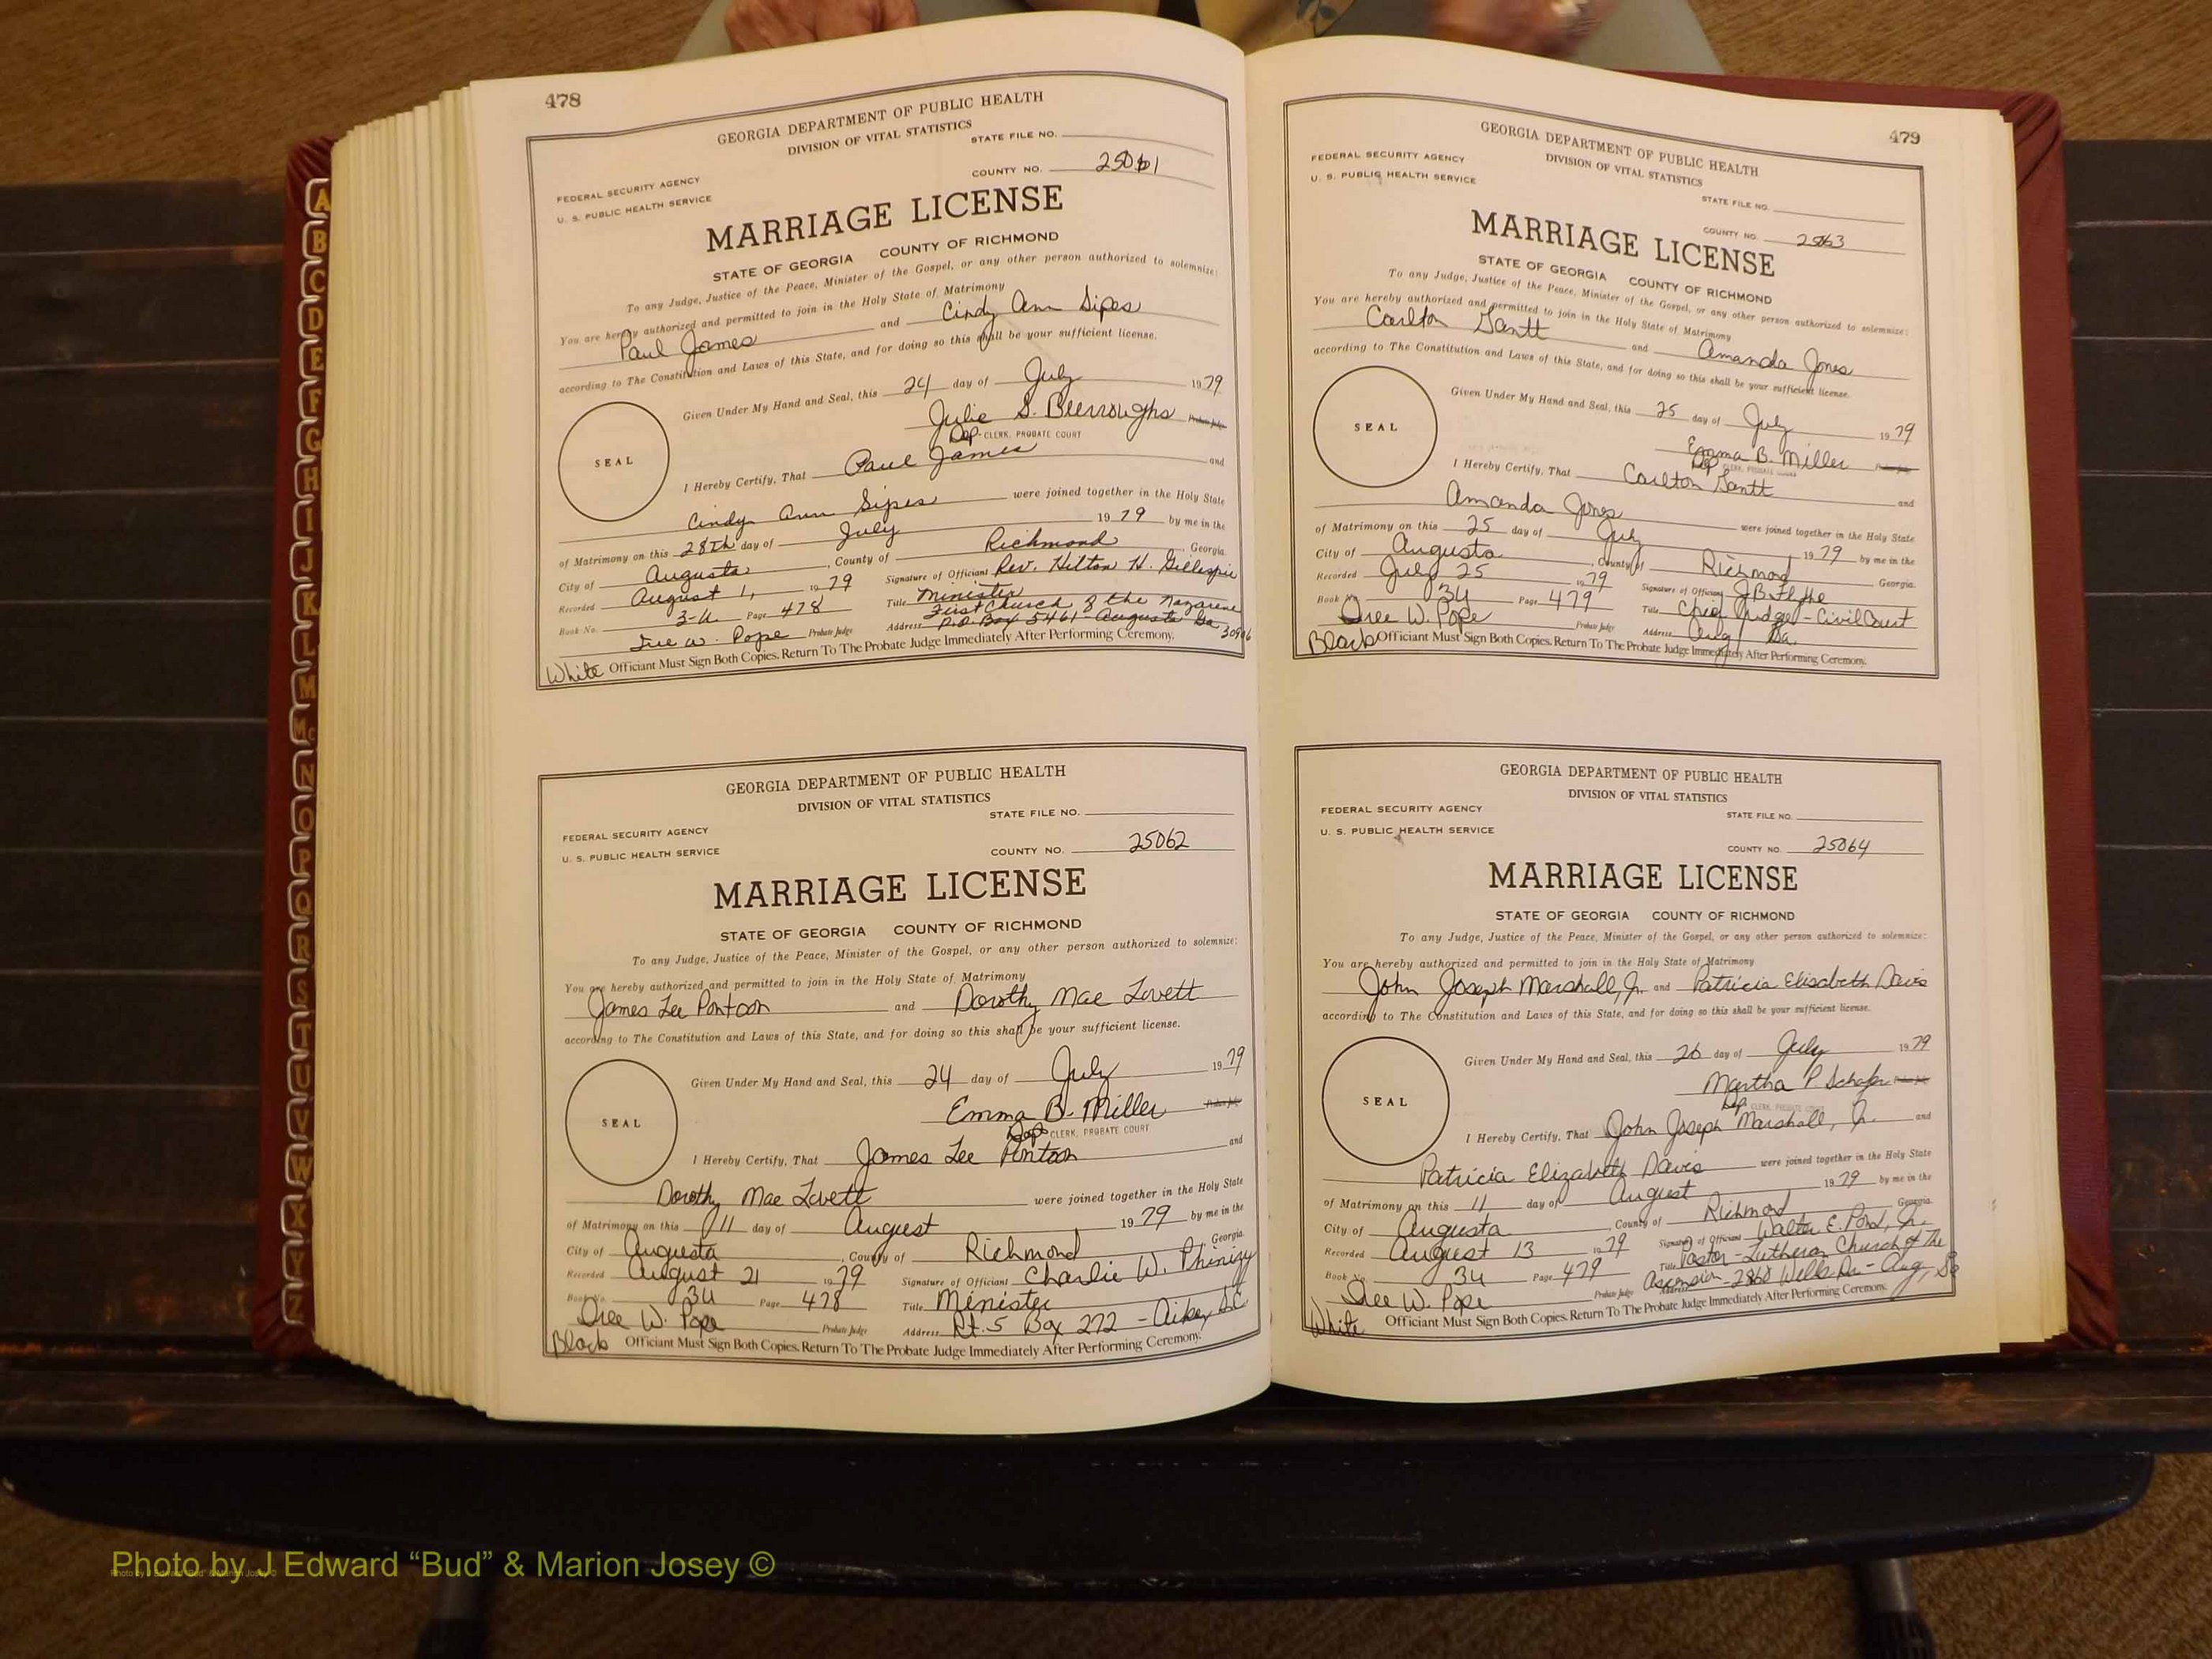 478
GEORGIA DEPARTMENT OF PUBLIC HEALTH
DIVISION OF VITAL STATISTICS
STATE FILE NO.
FEDERAL SECURITY AGENCY
U. S. PUBLIC HEALTH SERVICE
COUNTY NO. 25061
MARRIAGE LICENSE
STATE OF GEORGIA COUNTY OF RICHMOND
To any Judge, Justice of the Peace, Minister of the Gospel, or any other person authorized to solemnize:
You are hereby authorized and permitted to join in the Holy State of Matrimony
Paul James and Cindy Ann Sipes
according to The Constitution and Laws of this State, and for doing so this shall be your sufficient license.
Given Under My Hand and Seal, this 24 day of July 1979
Julie S. Burroughs Probate Judge
Dep. CLERK, PROBATE COURT
SEAL
I Hereby Certify, That Paul James and
Cindy Ann Sipes were joined together in the Holy State
of Matrimony on this 28th day of July 1979 by me in the
City of Augusta, County of Richmond, Georgia.
Recorded August 1, 1979 Signature of Officiant Rev. Hilton H. Gillespie
Book No. 3-U Page 478 Title Minister
First Church of the Nazarene
Sue W. Pope Probate Judge Address P.O. Box 5461 - Augusta Ga 30906
White Officiant Must Sign Both Copies. Return To The Probate Judge Immediately After Performing Ceremony.
GEORGIA DEPARTMENT OF PUBLIC HEALTH
DIVISION OF VITAL STATISTICS
STATE FILE NO.
FEDERAL SECURITY AGENCY
U. S. PUBLIC HEALTH SERVICE
COUNTY NO. 25062
MARRIAGE LICENSE
STATE OF GEORGIA COUNTY OF RICHMOND
To any Judge, Justice of the Peace, Minister of the Gospel, or any other person authorized to solemnize:
You are hereby authorized and permitted to join in the Holy State of Matrimony
James Lee Pontoon and Dorothy Mae Lovett
according to The Constitution and Laws of this State, and for doing so this shall be your sufficient license.
Given Under My Hand and Seal, this 24 day of July 1979
Emma B. Miller Probate Judge
Dep. CLERK, PROBATE COURT
SEAL
I Hereby Certify, That James Lee Pontoon and
Dorothy Mae Lovett were joined together in the Holy State
of Matrimony on this 11 day of August 1979 by me in the
City of Augusta, County of Richmond, Georgia.
Recorded August 21 1979 Signature of Officiant Charlie W. Phinizy
Book No. 3U Page 478 Title Minister
Sue W. Pope Probate Judge Address Rt. 5 Box 272 - Aiken, SC
Black Officiant Must Sign Both Copies. Return To The Probate Judge Immediately After Performing Ceremony.
479
GEORGIA DEPARTMENT OF PUBLIC HEALTH
DIVISION OF VITAL STATISTICS
FEDERAL SECURITY AGENCY
U. S. PUBLIC HEALTH SERVICE
STATE FILE NO.
COUNTY NO. 25063
MARRIAGE LICENSE
STATE OF GEORGIA COUNTY OF RICHMOND
To any Judge, Justice of the Peace, Minister of the Gospel, or any other person authorized to solemnize:
You are hereby authorized and permitted to join in the Holy State of Matrimony
Carlton Gantt and Amanda Jones
according to The Constitution and Laws of this State, and for doing so this shall be your sufficient license.
Given Under My Hand and Seal, this 25 day of July 1979
Emma B. Miller Probate Judge
Dep CLERK, PROBATE COURT
SEAL
I Hereby Certify, That Carlton Gantt and
Amanda Jones were joined together in the Holy State
of Matrimony on this 25 day of July 1979 by me in the
City of Augusta, County of Richmond Georgia.
Recorded July 25 1979 Signature of Officiant J B Flythe
Book No. 3U Page 479 Title Chief Judge - Civil Court
Sue W. Pope Probate Judge Address Aug Ga.
Black Officiant Must Sign Both Copies. Return To The Probate Judge Immediately After Performing Ceremony.
GEORGIA DEPARTMENT OF PUBLIC HEALTH
DIVISION OF VITAL STATISTICS
FEDERAL SECURITY AGENCY
STATE FILE NO.
U. S. PUBLIC HEALTH SERVICE
COUNTY NO. 25064
MARRIAGE LICENSE
STATE OF GEORGIA COUNTY OF RICHMOND
To any Judge, Justice of the Peace, Minister of the Gospel, or any other person authorized to solemnize:
You are hereby authorized and permitted to join in the Holy State of Matrimony
John Joseph Marshall, Jr. and Patricia Elisabeth Davis
according to The Constitution and Laws of this State, and for doing so this shall be your sufficient license.
Given Under My Hand and Seal, this 26 day of July 1979
Martha P Schafer Probate Judge
Dep. CLERK, PROBATE COURT
SEAL
I Hereby Certify, That John Joseph Marshall, Jr. and
Patricia Elizabeth Davis were joined together in the Holy State
of Matrimony on this 11 day of August 1979 by me in the
City of Augusta, County of Richmond Georgia.
Recorded August 13 1979 Signature of Officiant Walter E. Pond, Jr.
Book No. 3U Page 479 Title Pastor - Lutheran Church of The
Sue W. Pope Probate Judge Address Ascension - 2868 Wells Dr - Aug, Ga
White Officiant Must Sign Both Copies. Return To The Probate Judge Immediately After Performing Ceremony.
A
B
C
D
E
F
G
H
I
J
K
L
M
Mc
N
O
P
Q
R
S
T
U
V
W
X
Y
Z
Photo by J Edward "Bud" & Marion Josey ©
Photo by J Edward "Bud" & Marion Josey ©